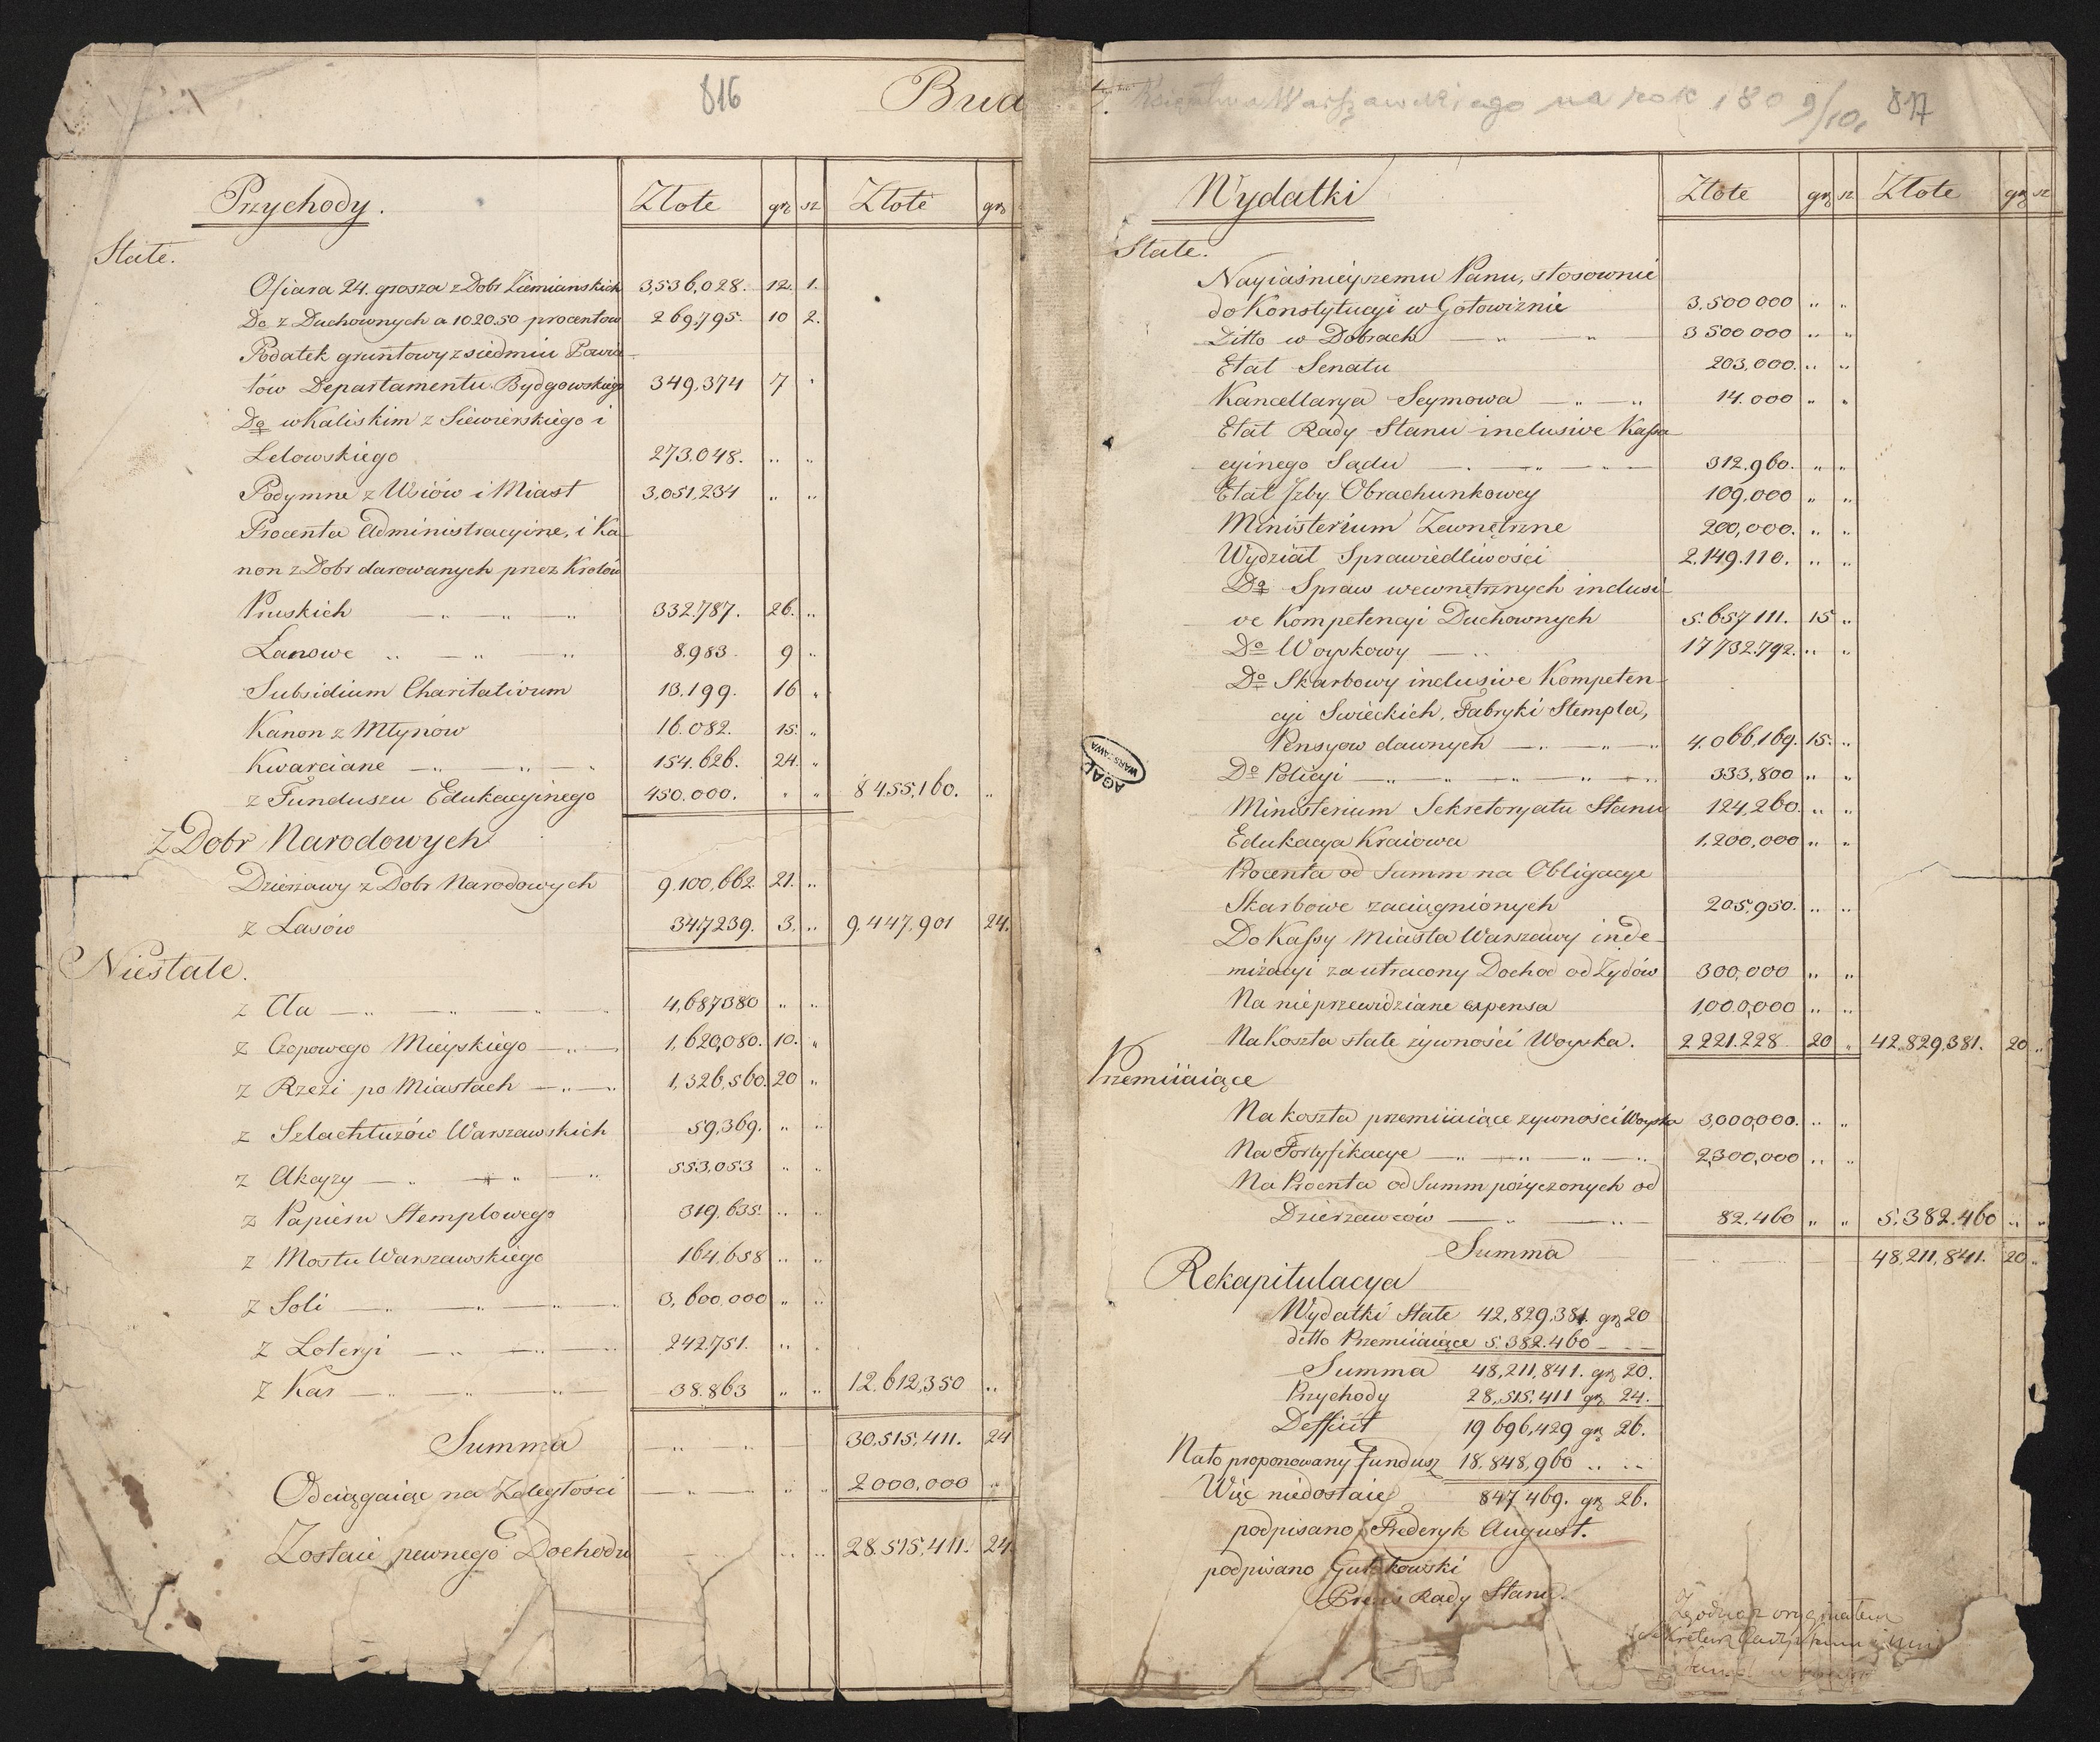 816
Bud
t. Księstwa Warszawskiego na rok 1809/10. 817
Przychody. Złote gr sz Złote gr
Stałe.
Ofiara 24. grosza z Dobr Ziemianskich 3,536,028. 12. 1.
Do z Duchownych a 10 20. 50 procentow 269,795. 10 2.
Podatek gruntowy z siedmiu Powia-
tów Departamentu Bydgowskiego 349,374 7 "
Do w Kaliskim z Siewierskiego i
Lelowskiego 273.048. " "
Podymne z Wsiów i Miast 3,051,234 " "
Procenta Administracyine, i Ka-
non z Dobr darowanych przez Krolów
Pruskich — " — " — " 332.787. 26. "
Łanowe " — " — " 8.983. 9 "
Subsidium Charitativum 13.199. 16 "
Kanon z Młynów 16.082. 15. "
Kwarciane — " — " — " 154.626. 24. "
z Funduszu Edukacyinego 450.000. " " 8 455,160. "
z Dobr Narodowych
Dzierżawy z Dobr Narodowych 9.100,662. 21. "
z Lasów 347,239. 3. " 9.447,901 24.
Niestałe.
z Cła — " — " — " 4,687380 " "
z Czopowego Mieyskiego — " — 1,620,080. 10. "
z Rzezi po Miastach — " — " 1,326,560. 20 "
z Szlachtuzów Warszawskich 59,369. " "
z Akcyzy — " — " — " 553,053 " "
z Papieru Stemplowego 319,635. " "
z Mostu Warszawskiego 164,658 " "
z Soli — " — " — " 3,600,000 " "
z Loteryi — " — " — " 242,751. " "
z Kar — " — " — 38.863 " " 12.612,350 "
Summa — " — " — 30,515,411. 24
Odciągaiąc na Zaległości — " — " " 2 000,000 "
Zostaie pewnego Dochodu — " " 28.515,411. 24.
Wydatki Złote gr sz Złote gr sz
Stałe.
Nayiaśnieyszemu Panu, stosownie
do Konstytucyi w Gotowiźnie 3.500 000 " "
Ditto w Dobrach — " — " 3 500 000 " "
Etat Senatu 203,000. " "
Kancellarya Seymowa — " — " 14.000 " "
Etat Rady Stanu inclusive Kassa-
cyinego Sądu — " — " — " 312.960. " "
Etat Izby Obrachunkowey 109,000 " "
Ministerium Zewnętrzne 200,000. " "
Wydział Sprawiedliwości 2.149.110. " "
Do Spraw wewnętrznych inclusi-
ve Kompetencyi Duchownych 5.657 111. 15 "
Do Woyskowy — " 17 732.792. " "
Do Skarbowy inclusive Kompeten-
cyi Swieckich, Fabryki Stempla,
Pensyow dawnych — " — " — " 4.066,169. 15. "
Do Policyi — " — " — " — " — " 333,800 " "
Ministerium Sekretoryatu Stanu 124,260. " "
Edukacya Kraiowa 1.200,000 " "
Procenta od Summ na Obligacye
Skarbowe zaciągnionych 205,950. " "
Do Kassy Miasta Warszawy inde-
mizacyi za utracony Dochod od Żydów 300,000 " "
Na nieprzewidziane expensa 1,000,000 " "
Na Koszta stałe żywności Woyska. 2 221.228 20 " 42,829,381. 20 "
Przemiiaiące
Na koszta przemiiaiące żywności Woyska 3,000,000. " "
Na Fortyfikacye — " — " — " — " 2,300,000 " "
Na Procenta od Summ pożyczonych od
Dzierzawców — " — " — 82.460 " " 5.382.460 " "
Summa — " — " — 48,211,841. 20 "
Rekapitulacya
Wydatki Stałe 42,829,381. gr 20
ditto Przemiiaiące 5.382.460 — — —
Summa 48,211,841. gr 20.
Przychody 28,515,411 gr 24.
Defficit 19 696,429 gr 26.
Na to proponowany Fundusz 18,848,960 " "
Więc niedostaie 847 469. gr 26.
podpisano Frederyk August.
podpisano Gutakowski
Prezes Rady Stanu.
AGAD
WARSZAWA
Zgodno z oryginałem